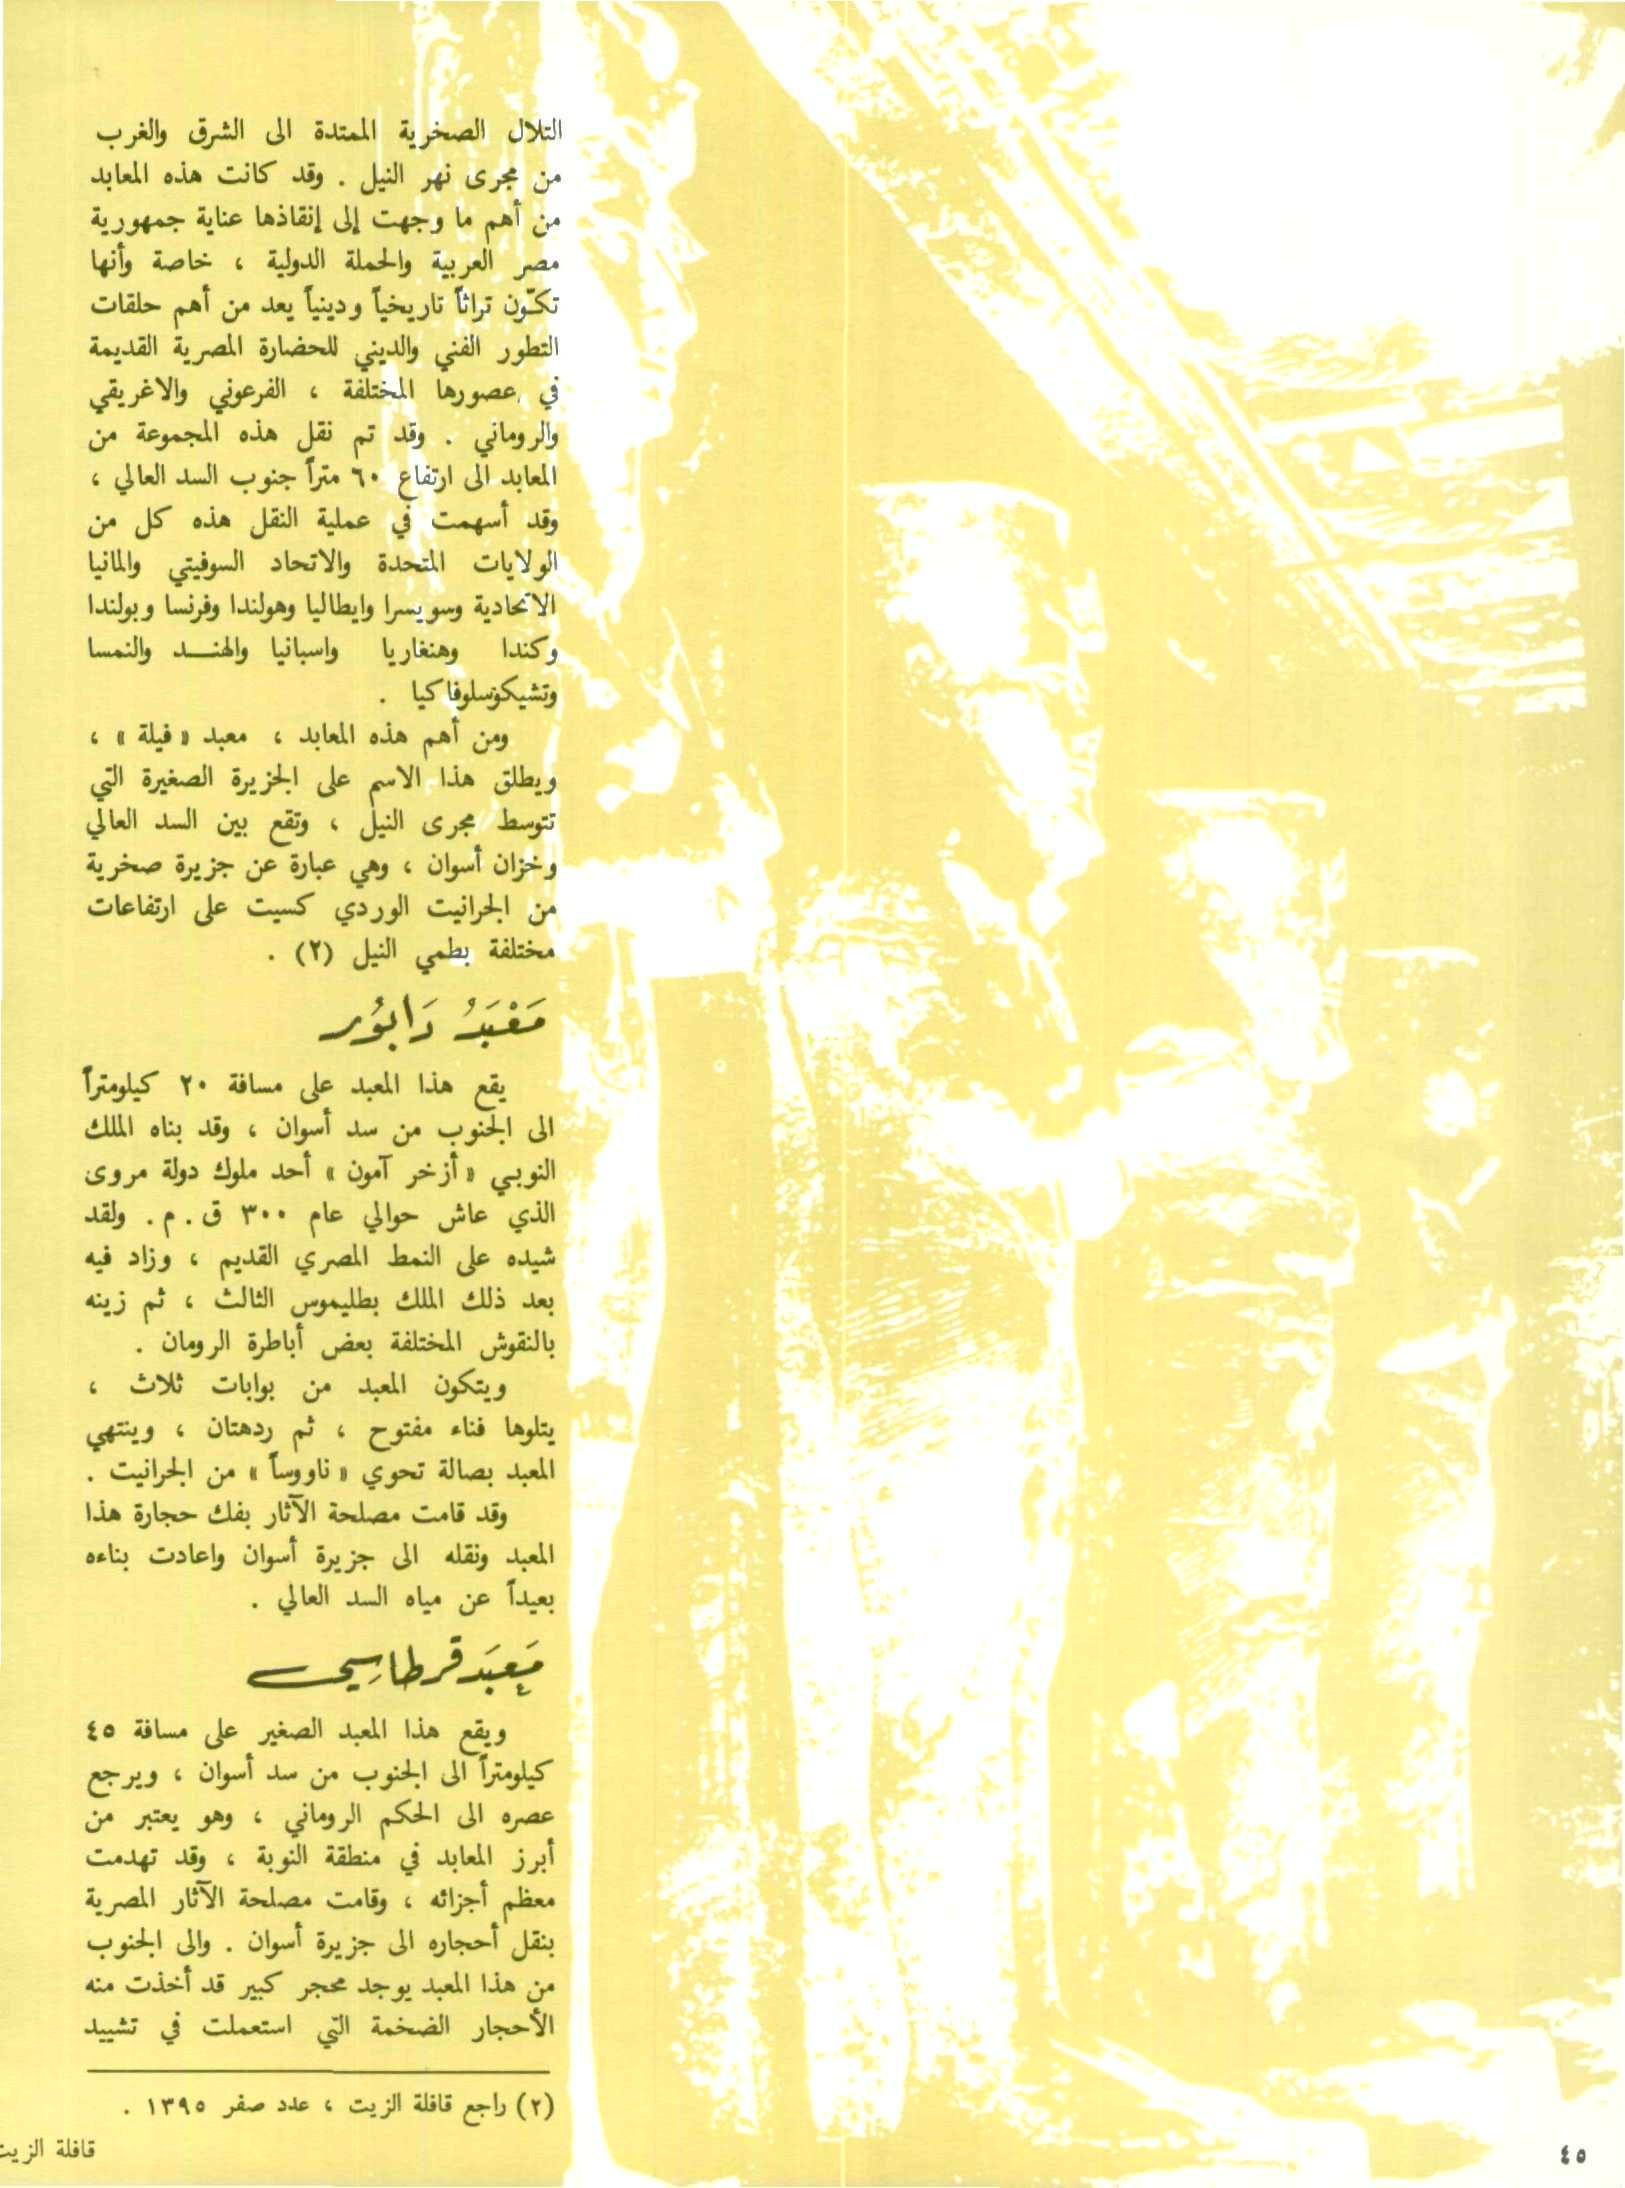 التلال الصخرية الممتدة الى الشرق والغرب
من مجرى نهر النيل . وقد كانت هذه المعابد
من أهم ما وجهت إلى إنقاذها عناية جمهورية
مصر العربية والحملة الدولية ، خاصة وأنها
تكـّون تراثاً تاريخياً ودينياً يعد من أهم حلقات
التطور الفني والديني للحضارة المصرية القديمة
في عصورها المختلفة ، الفرعوني والاغريقي
والروماني . وقد تم نقل هذه المجموعة من
المعابد الى ارتفاع ٦٠ متراً جنوب السد العالي ،
وقد أسهمت في عملية النقل هذه كل من
الولايات المتحدة والاتحاد السوفيتي والمانيا
الاتحادية وسويسرا وايطاليا وهولندا وفرنسا وبولندا
وكندا وهنغاريا واسبانيا والهنــد والنمسا
وتشيكوسلوفاكيا .
ومن أهم هذه المعابد ، معبد «فيلة» ،
ويطلق هذا الاسم على الجزيرة الصغيرة التي
تتوسط مجرى النيل ، وتقع بين السد العالي
وخزان أسوان ، وهي عبارة عن جزيرة صخرية
من الجرانيت الوردي كسيت على ارتفاعات
مختلفة بطمي النيل (٢) .
مَعْبَدُ دَابُور
يقع هذا المعبد على مسافة ٢٠ كيلومتراً
الى الجنوب من سد أسوان ، وقد بناه الملك
النوبي «أزخر آمون» أحد ملوك دولة مروى
الذي عاش حوالي عام ٣٠٠ ق.م. ولقد
شيده على النمط المصري القديم ، وزاد فيه
بعد ذلك الملك بطليموس الثالث ، ثم زينه
بالنقوش المختلفة بعض أباطرة الرومان .
ويتكون المعبد من بوابات ثلاث ،
يتلوها فناء مفتوح ، ثم ردهتان ، وينتهي
المعبد بصالة تحوي «ناووساً» من الجرانيت .
وقد قامت مصلحة الآثار بفك حجارة هذا
المعبد ونقله الى جزيرة أسوان واعادت بناءه
بعيداً عن مياه السد العالي .
مَعبَد قرطاسِي
ويقع هذا المعبد الصغير على مسافة ٤٥
كيلومتراً الى الجنوب من سد أسوان ، ويرجع
عصره الى الحكم الروماني ، وهو يعتبر من
أبرز المعابد في منطقة النوبة ، وقد تهدمت
معظم أجزائه ، وقامت مصلحة الآثار المصرية
بنقل أحجاره الى جزيرة أسوان . والى الجنوب
من هذا المعبد يوجد محجر كبير قد أخذت منه
الأحجار الضخمة التي استعملت في تشييد
(٢) راجع قافلة الزيت ، عدد صفر ١٣٩٥ .
قافلة الزيت
٤٥